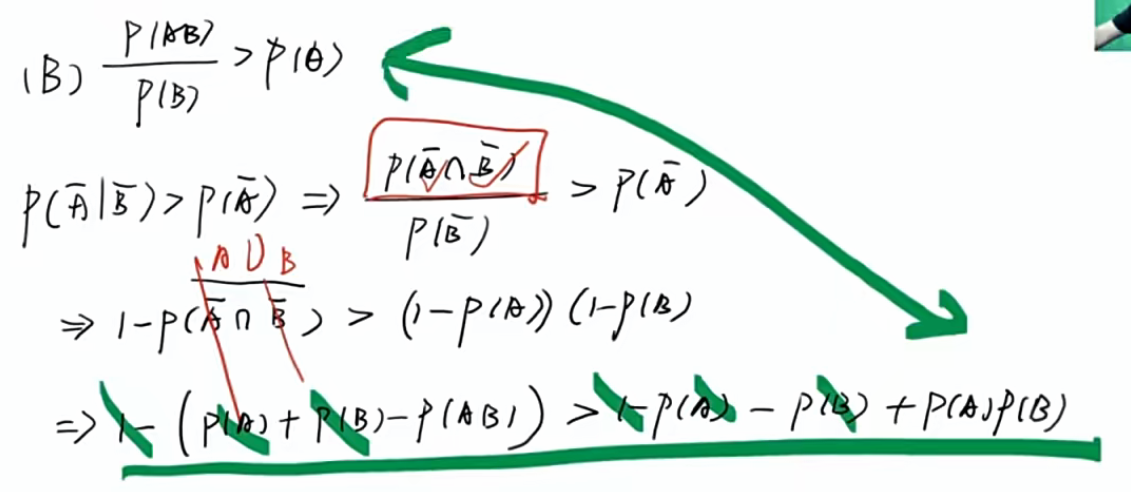 (B) P(AB)/P(B) > P(A)
P(Ā|B̄) > P(Ā) ⇒ P(Ā∩B̄)/P(B̄) > P(Ā)
A∪B
⇒ 1-P(‾(Ā∩B̄)) > (1-P(A)) (1-P(B)
⇒ 1-(P(A)+P(B)-P(AB)) > 1-P(A)-P(B)+P(A)P(B)